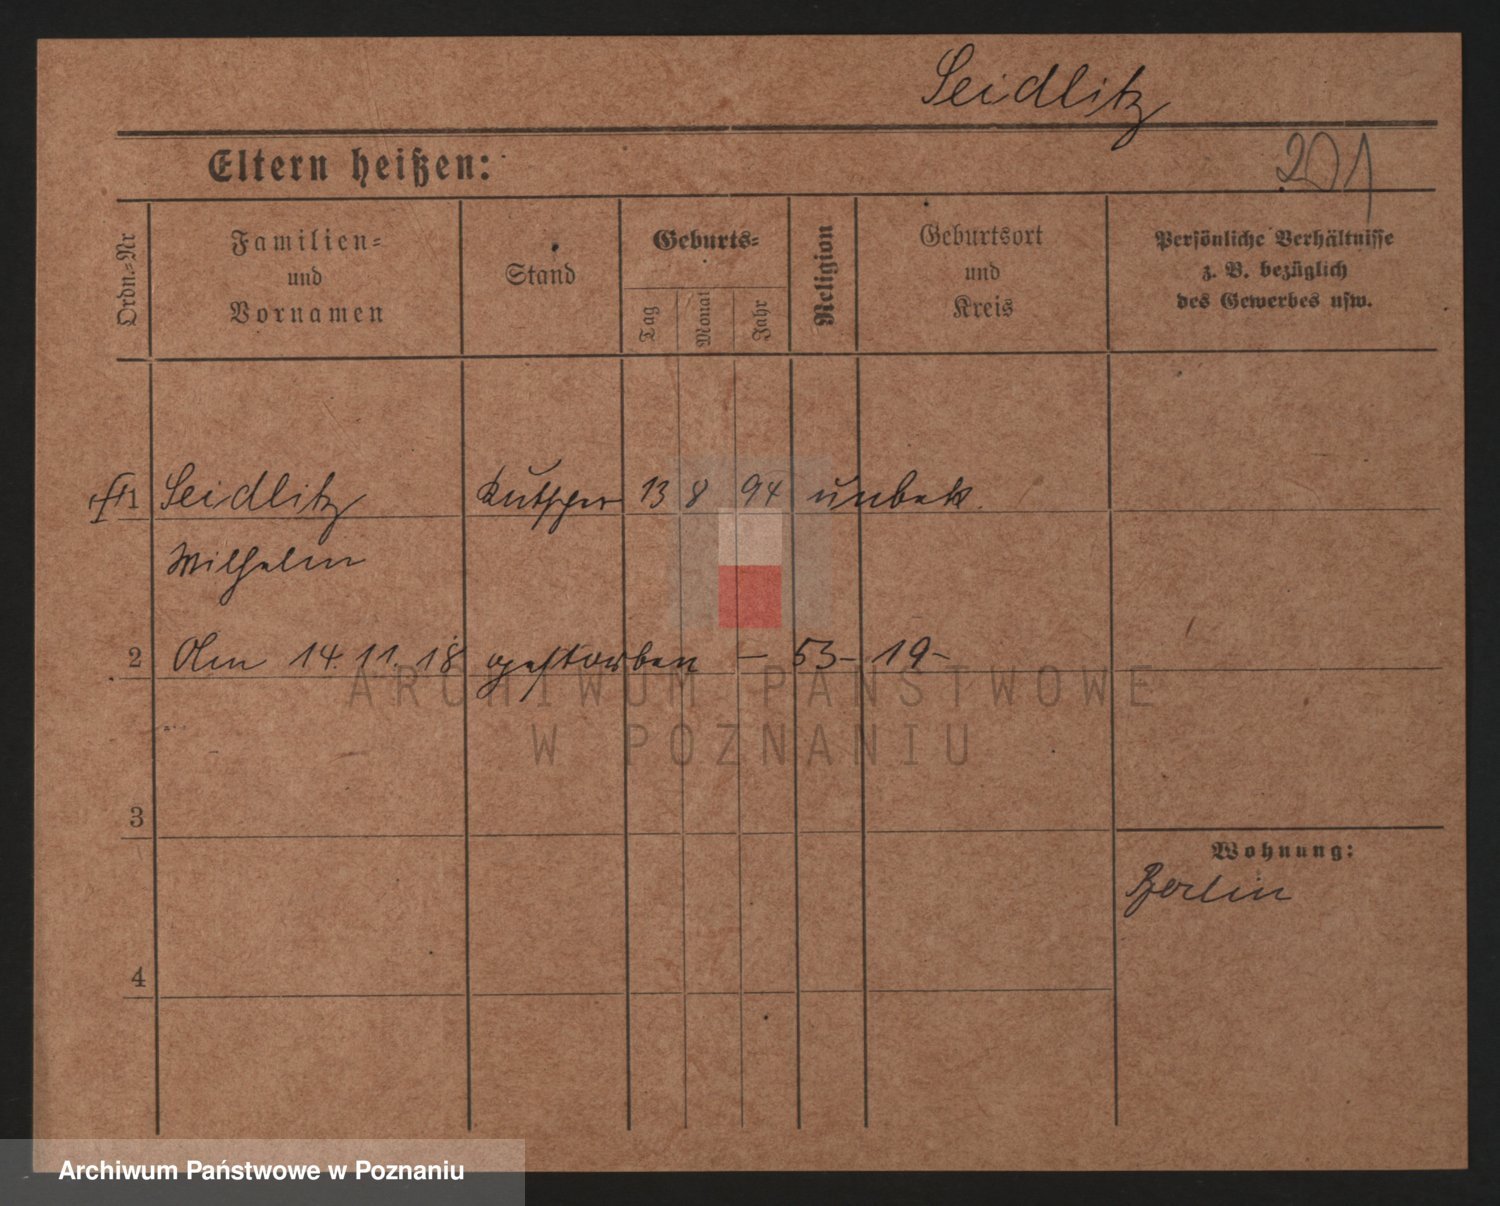 Seidlitz
Eltern heißen:
201
Ordn=Nr
Familien=
und
Vornamen
Stand
Geburts=
Tag
Monat
Jahr
Religion
Geburtsort
und
Kreis
Persönliche Verhältnisse
z. B. bezüglich
des Gewerbes usw.
1 Seidlitz Kutscher 13 8 94 unbek.
Wilhelm
2 Am 14.11.18 gestorben – 53 – 19 –
ARCHIWUM PAŃSTWOWE
W POZNANIU
3
Wohnung:
Berlin
4
Archiwum Państwowe w Poznaniu